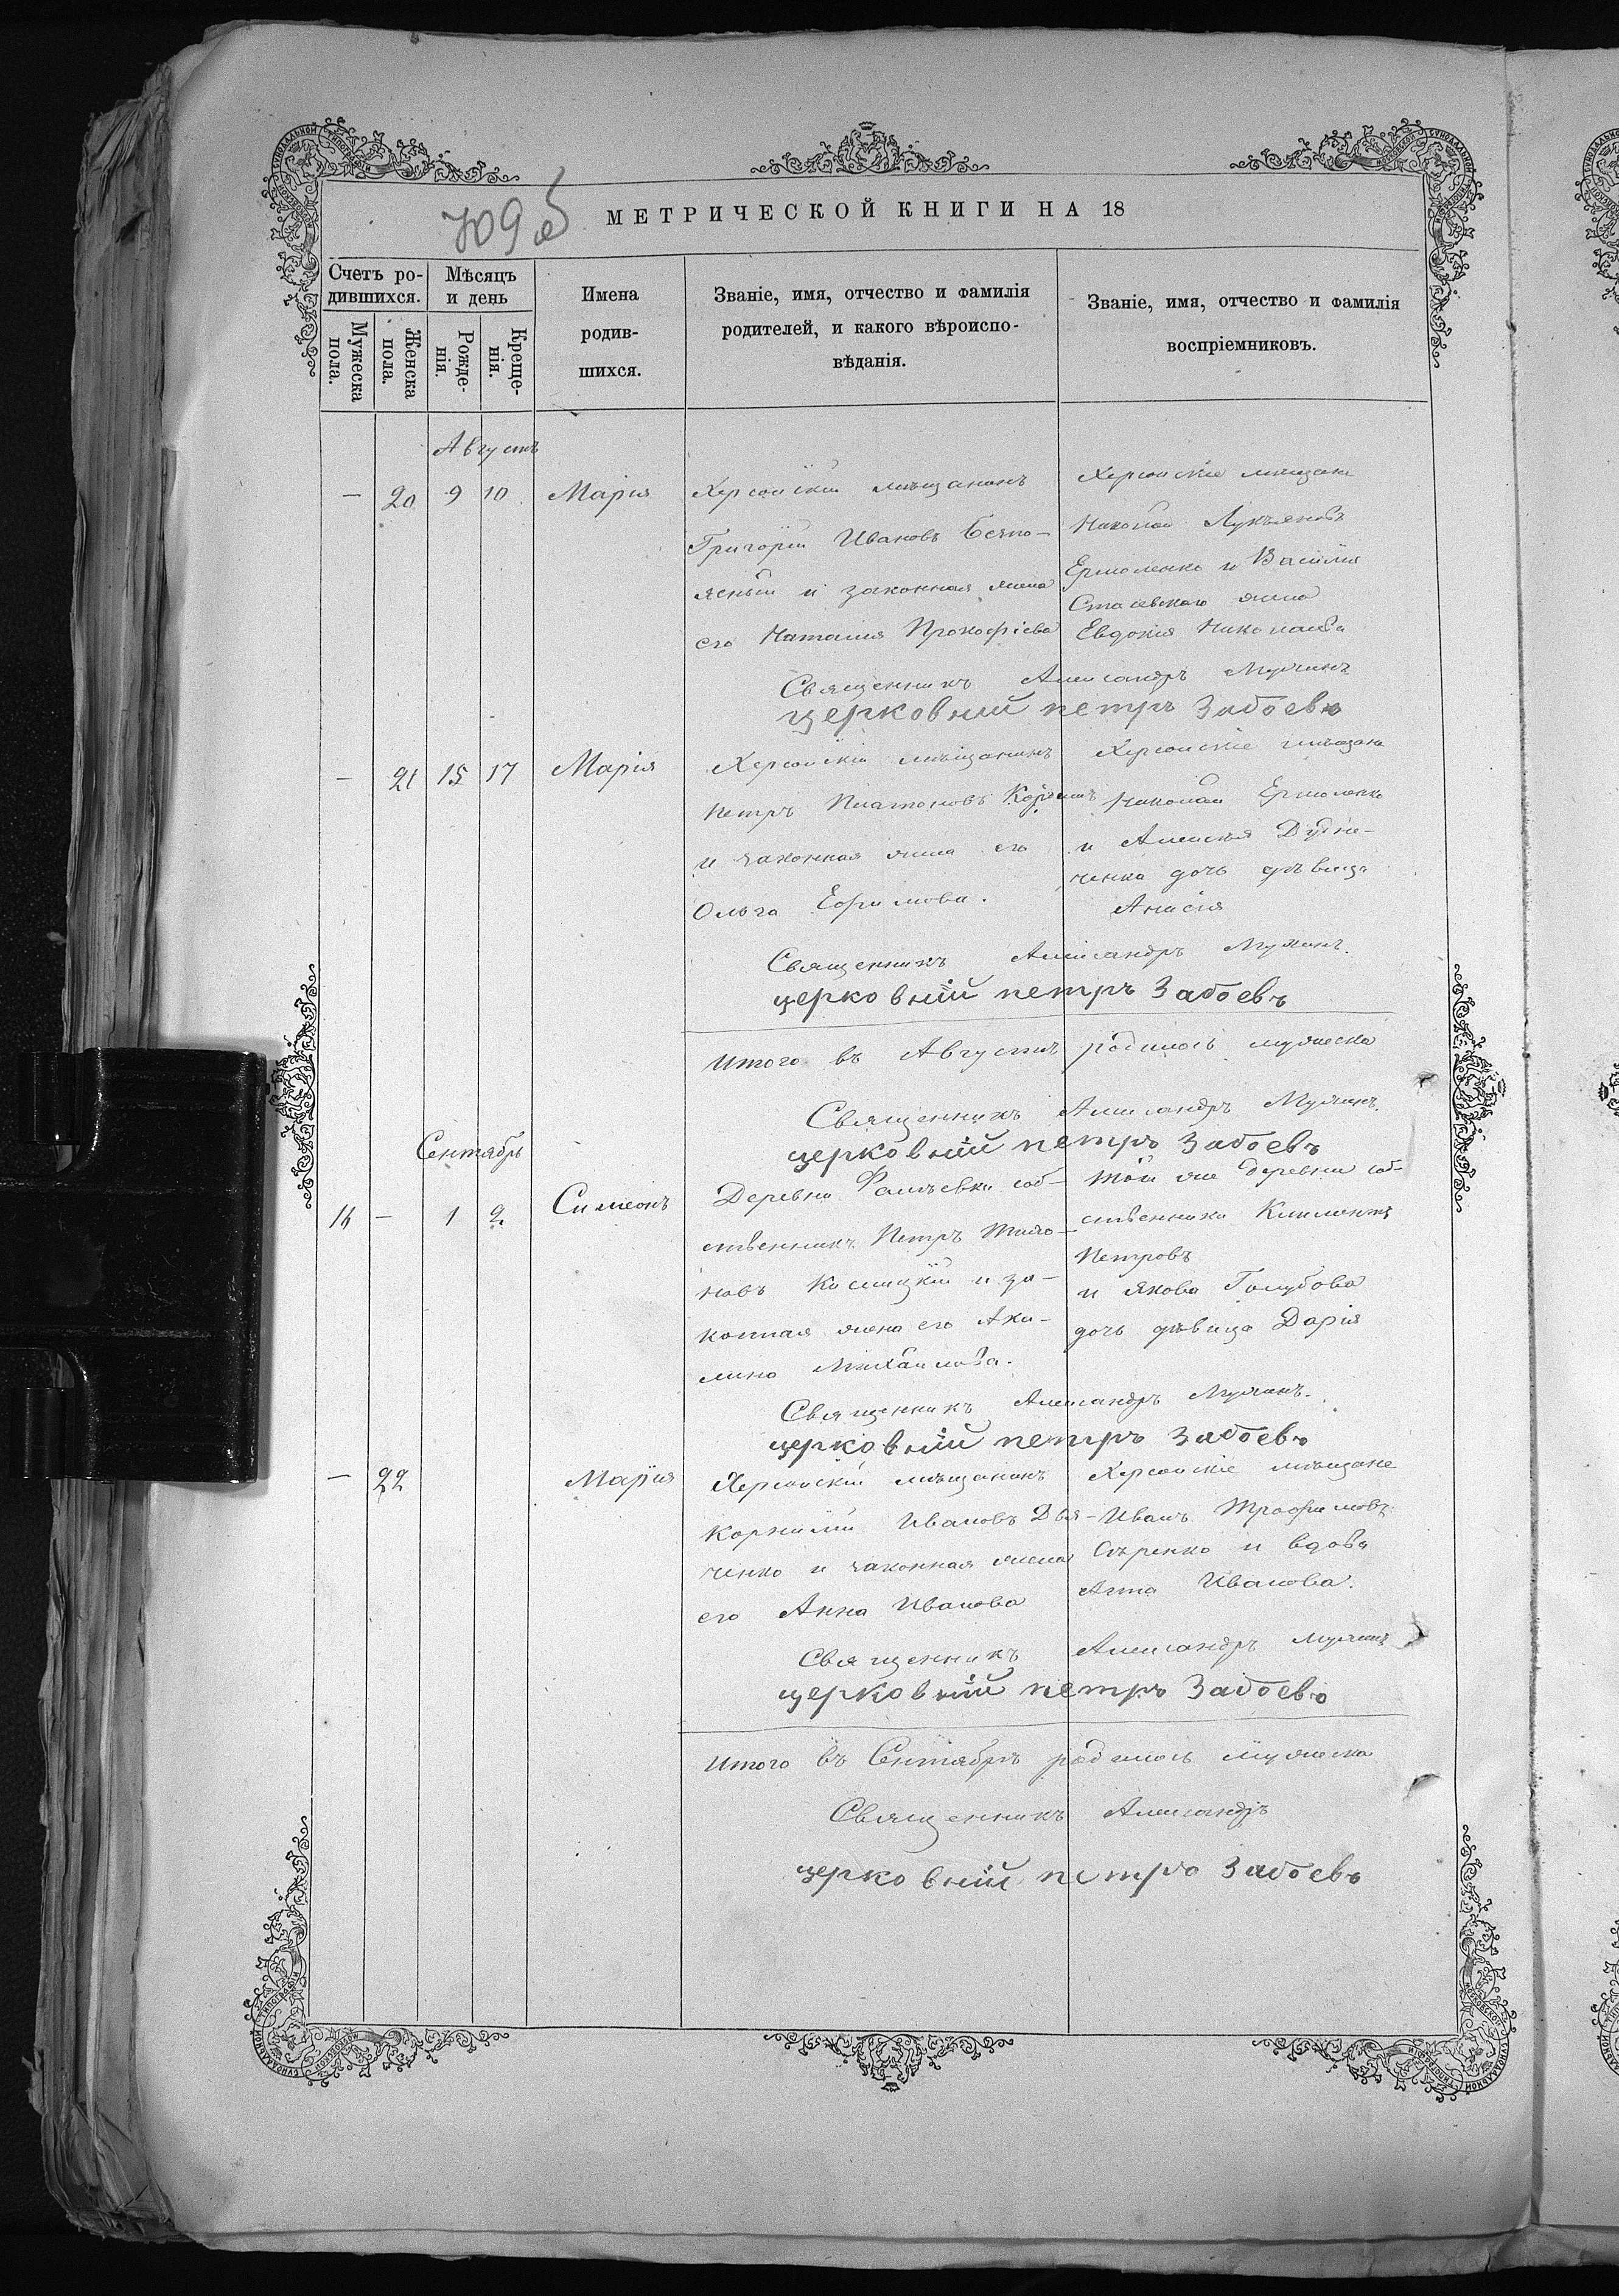 709 об
МЕТРИЧЕСКОЙ КНИГИ НА 18
Счетъ ро-
дившихся.
Мѣсяцъ
и день
Мужеска
пола.
Женска
пола.
Рожде-
нія.
Креще-
нія.
Имена
родив-
шихся.
Званіе, имя, отчество и фамилія
родителей, и какого вѣроиспо-
вѣданія.
Званіе, имя, отчество и фамилія
воспріемниковъ.
Августъ
— 20 9 10 Марія
Херсонскій мѣщанинъ
Григорій Ивановъ Безпо-
ясный и законная жена
его Наталія Прокофіева
Херсонскіе мѣщане
Николай Лукьяновъ
Ермоленко и Василія
жена
Евдокія Николаева
Священникъ Александръ
церковний петръ Забоевъ
— 21 15 17 Марія
Херсонскій мѣщанинъ
Петръ Платоновъ
и законная жена его
Ольга Ефимова.
Херсонскіе мѣщане
Николай Ермоленко
и Алексѣя Дудни-
ченка дочь дѣвица
Анисія
Священникъ Александръ
церковній петръ Забоевъ
Итого въ Августѣ родилось мужеска
Священникъ Александръ
церковній петръ Забоевъ
Сентябрь
16 — 1 2 Симеонъ
Деревни соб-
ственникъ Петръ
новъ и за-
конная жена его Аки-
лина Михайлова.
Той же деревни соб-
ственники Климентъ
Петровъ
и Якова Голубова
дочь дѣвица Дарія
Священникъ Александръ
церковній петръ Забоевъ
— 22 Марія
Херсонскій мѣщанинъ
Корнилій Ивановъ Дья-
ченко и законная жена
его Анна Иванова
Херсонскіе мѣщане
Иванъ Трофимовъ
Сѣренко и вдова
Анна Иванова.
Священникъ Александръ
церковній петръ Забоевъ
Итого въ Сентябрѣ родилось мужеска
Священникъ Александръ
церковній петръ Забоевъ